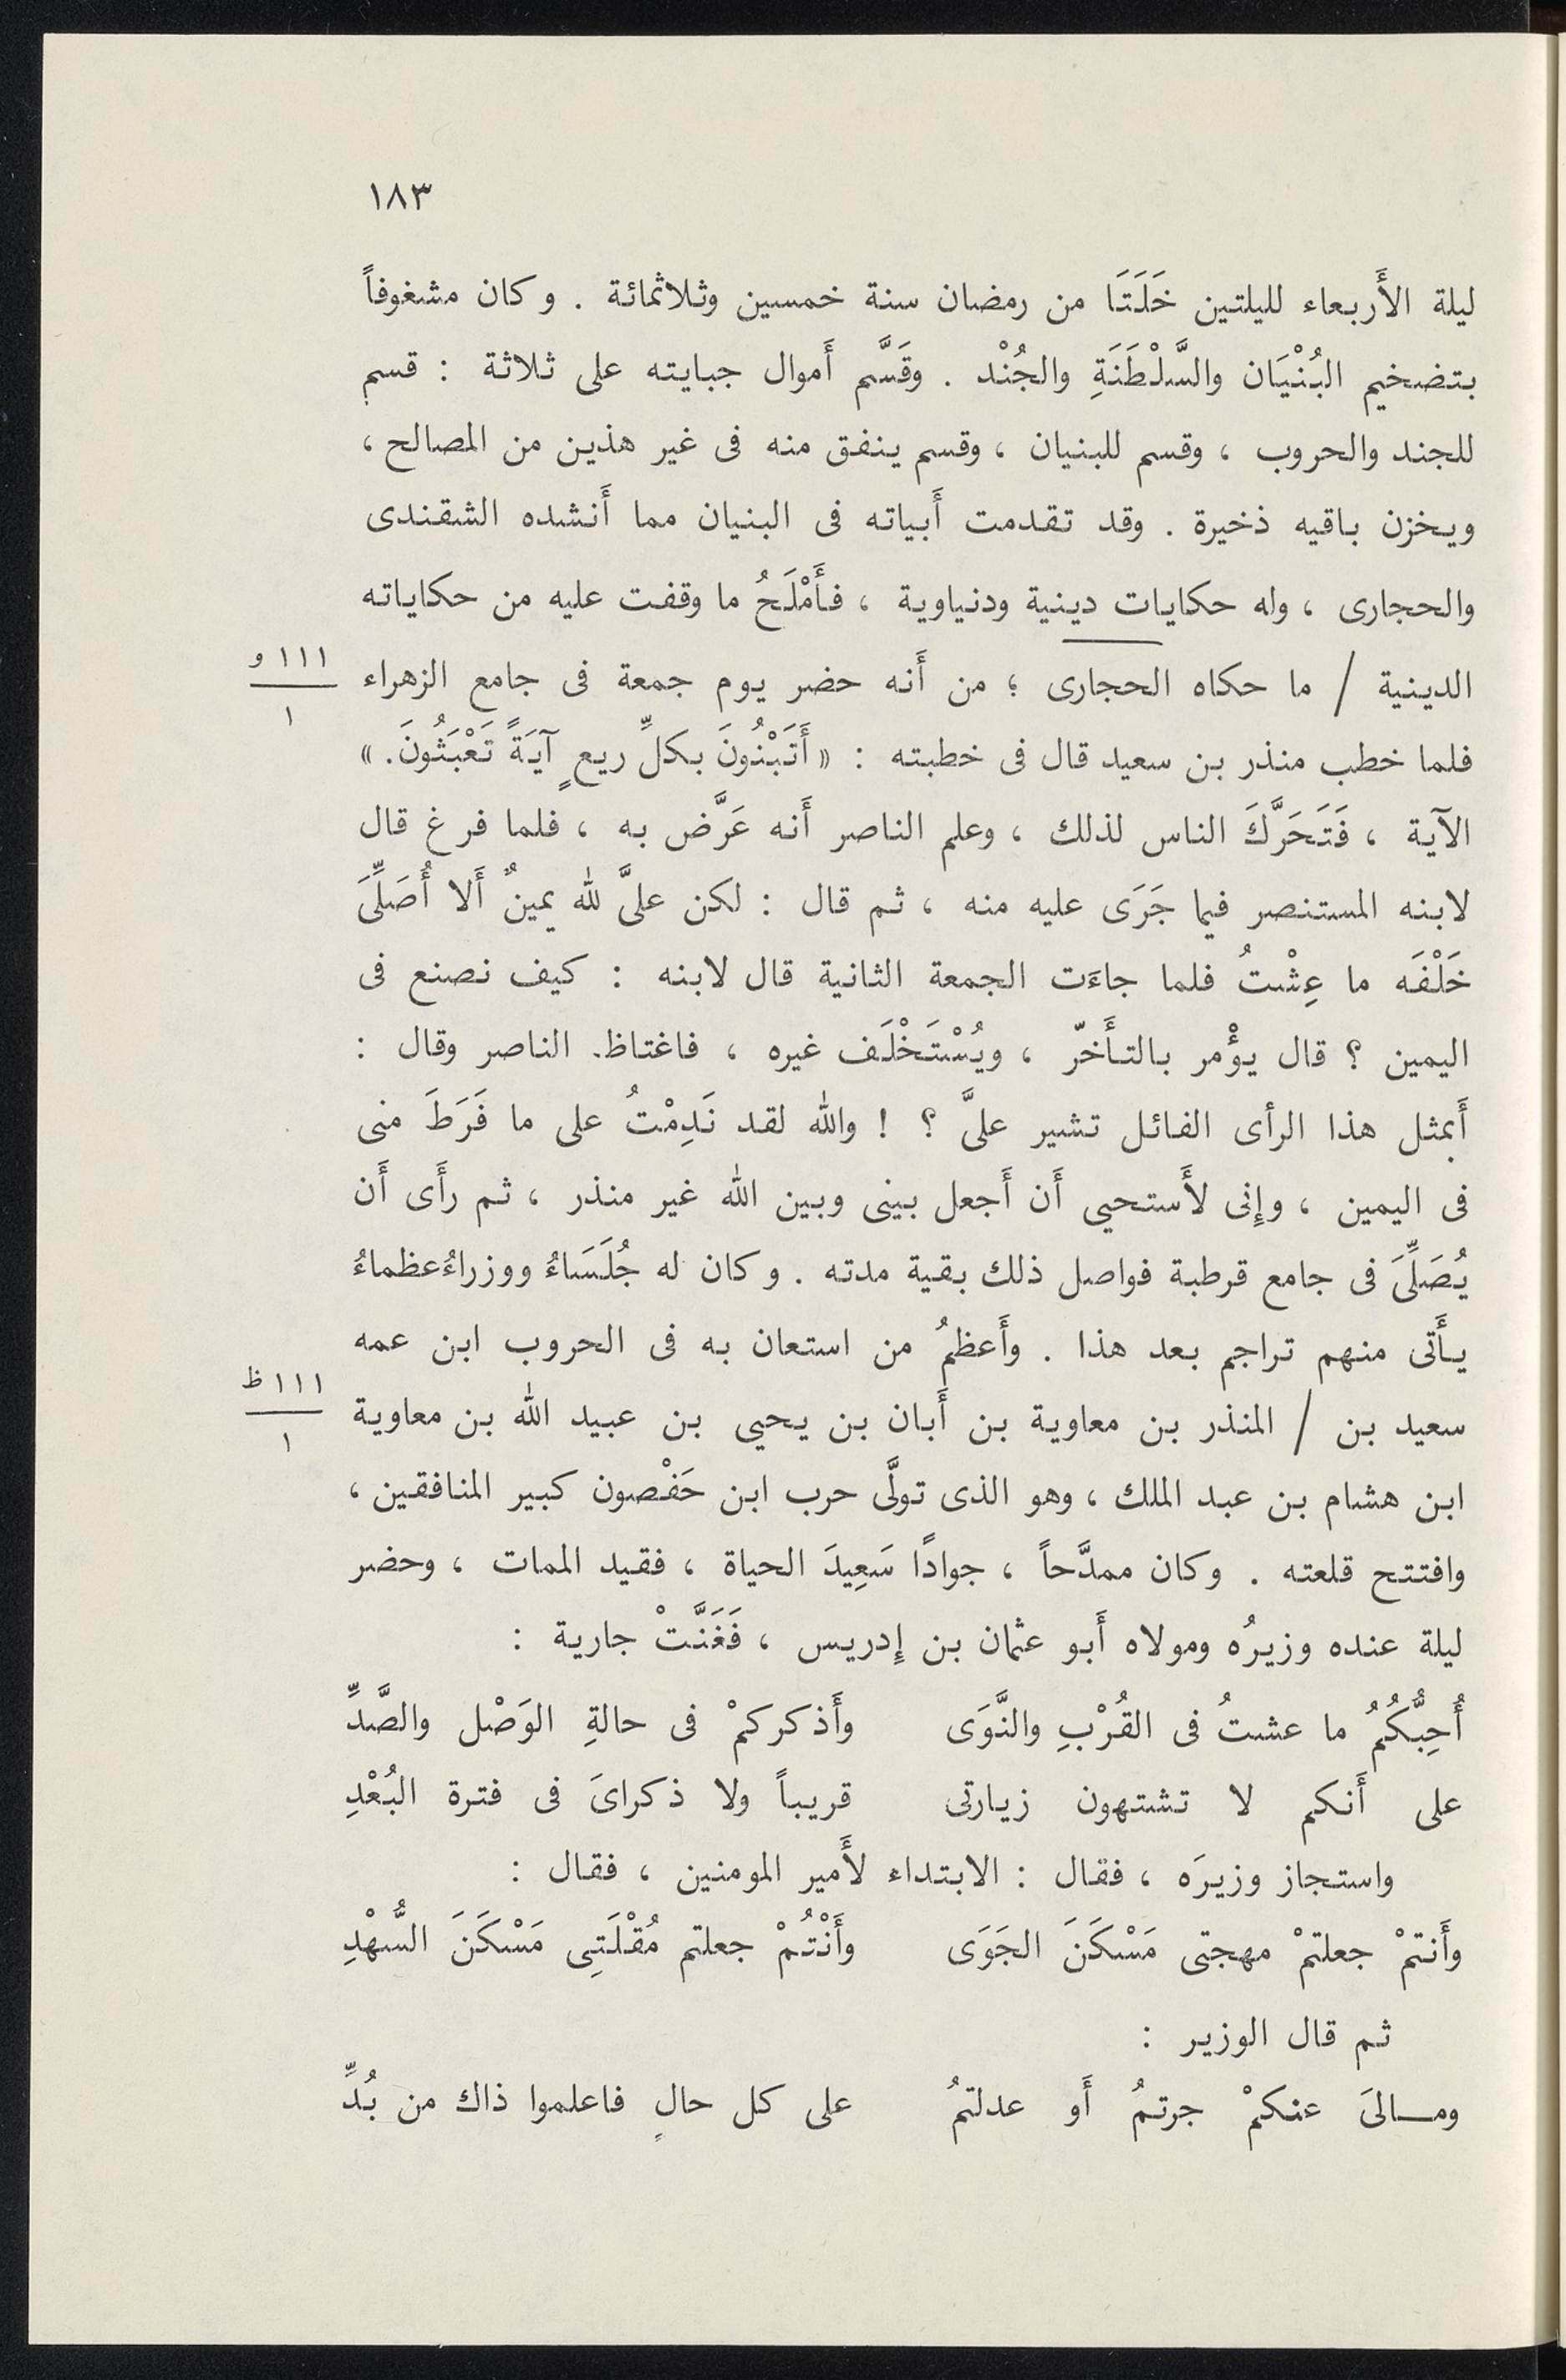 ١٨٣
ليلة الأَربعاء لليلتين خَلَتَا من رمضان سنة خمسين وثلاثمائة . وكان مشغوفاً
بتضخيم البُنْيَان والسَّلْطَنَةِ والجُنْد . وقَسَّم أَموال جبايته على ثلاثة : قسم
للجند والحروب ، وقسم للبنيان ، وقسم ينفق منه فى غير هذين من المصالح ،
ويخزن باقيه ذخيرة . وقد تقدمت أَبياته فى البنيان مما أَنشده الشقندى
والحجارى ، وله حكايات دينية ودنياوية ، فأَمْلَحُ ما وقفت عليه من حكاياته
الدينية / ما حكاه الحجارى ؛ من أَنه حضر يوم جمعة فى جامع الزهراء
١١١ و
١
فلما خطب منذر بن سعيد قال فى خطبته : « أَتَبْنُونَ بكلِّ ريعٍ آيَةً تَعْبَثُونَ . »
الآية ، فَتَحَرَّكَ الناس لذلك ، وعلم الناصر أَنه عَرَّض به ، فلما فرغ قال
لابنه المستنصر فيما جَرَى عليه منه ، ثم قال : لكن علىَّ لله يمينٌ أَلا أُصَلِّىَ
خَلْفَه ما عِشْتُ فلما جاءَت الجمعة الثانية قال لابنه : كيف نصنع فى
اليمين ؟ قال يؤْمر بالتأَخرّ ، ويُسْتَخْلَف غيره ، فاغتاظ. الناصر وقال :
أَبمثل هذا الرأى الفائل تشير علىَّ ؟ ! والله لقد نَدِمْتُ على ما فَرَطَ منى
فى اليمين ، وإِنى لأَستحيى أَن أَجعل بينى وبين الله غير منذر ، ثم رأَى أَن
يُصَلِّىَ فى جامع قرطبة فواصل ذلك بقية مدته . وكان له جُلَسَاءُ ووزراءُ عظماءُ
يأَتى منهم تراجم بعد هذا . وأَعظمُ من استعان به فى الحروب ابن عمه
سعيد بن / المنذر بن معاوية بن أَبان بن يحيى بن عبيد الله بن معاوية
١١١ ظ
١
ابن هشام بن عبد الملك ، وهو الذى تولَّى حرب ابن حَفْصون كبير المنافقين ،
وافتتح قلعته . وكان ممدَّحاً ، جوادًا سَعِيدَ الحياة ، فقيد الممات ، وحضر
ليلة عنده وزيرُه ومولاه أَبو عثمان بن إِدريس ، فَغَنَّتْ جارية :
أُحِبُّكُمُ ما عشتُ فى القُرْبِ والنَّوَى وأَذكركمْ فى حالةِ الوَصْل والصَّدِّ
على أَنكم لا تشتهون زيارتى قريباً ولا ذكراىَ فى فترة البُعْدِ
واستجاز وزيرَه ، فقال : الابتداء لأَمير المومنين ، فقال :
وأَنتمْ جعلتمْ مهجتى مَسْكَنَ الجَوَى وأَنْتُمْ جعلتم مُقْلَتِى مَسْكَنَ السُّهْدِ
ثم قال الوزير :
ومالىَ عنكمْ جرتمُ أَو عدلتمُ على كل حالٍ فاعلموا ذاك من بُدِّ